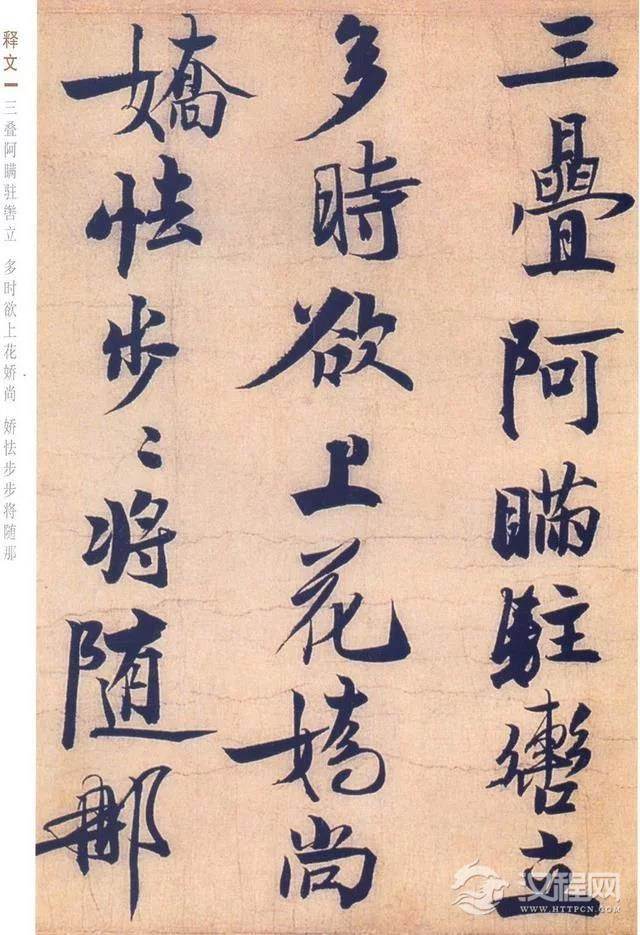 三疊阿瞞駐轡立
多時欲上花嬌尚
嬌怯步〻将随那
释文
三叠阿瞒驻辔立 多时欲上花娇尚 娇怯步步将随那
汉程网
WWW.HTTPCN.COM